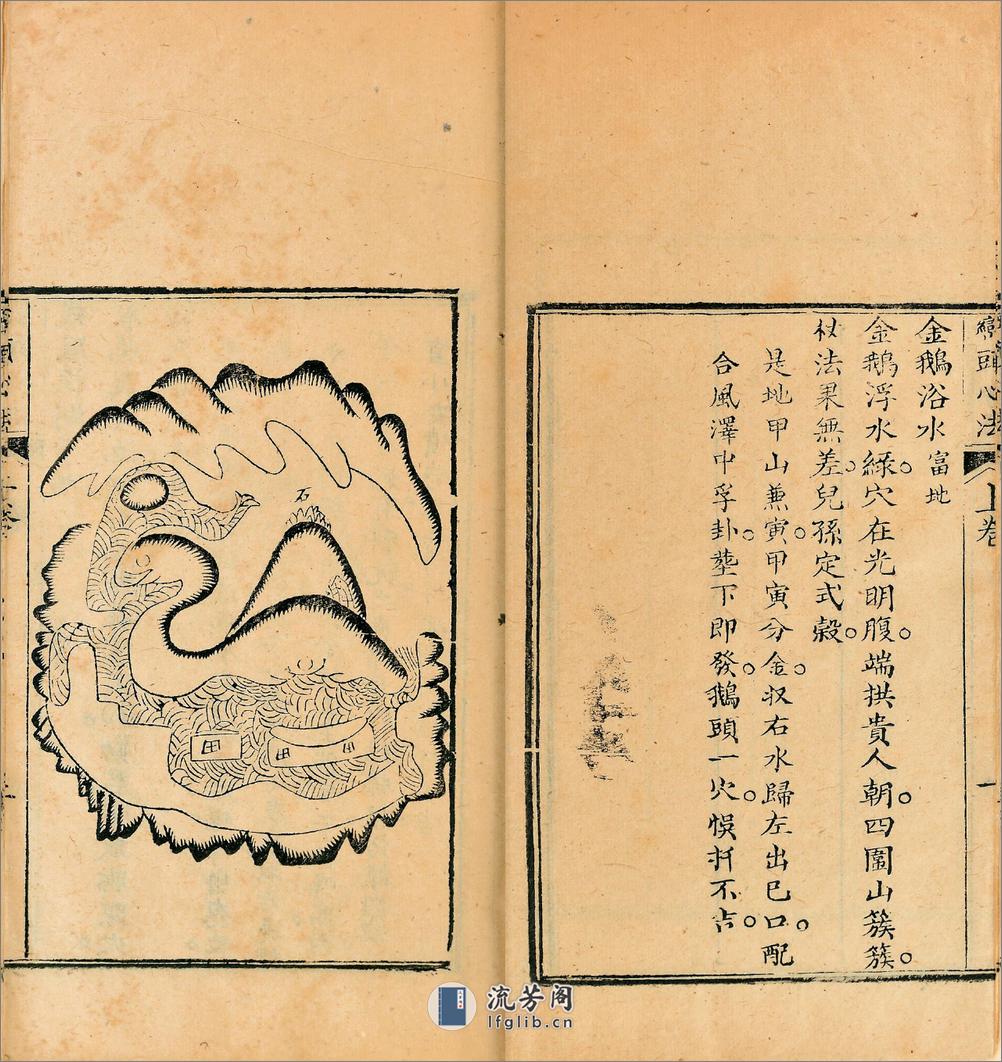 巒頭心法 上卷 一
金鵝浴水富地
金鵝浮水綠。穴在光明腹。端拱貴人朝。四圍山簇簇。
杖法果無差。兒孫定式穀。
是地甲山兼寅。甲寅分金。収右水歸左出巳口。配
合風澤中孚卦。塟下即發。鵝頭一穴。悞扦不吉。
石
田
田 田
流芳阁
lfglib.cn